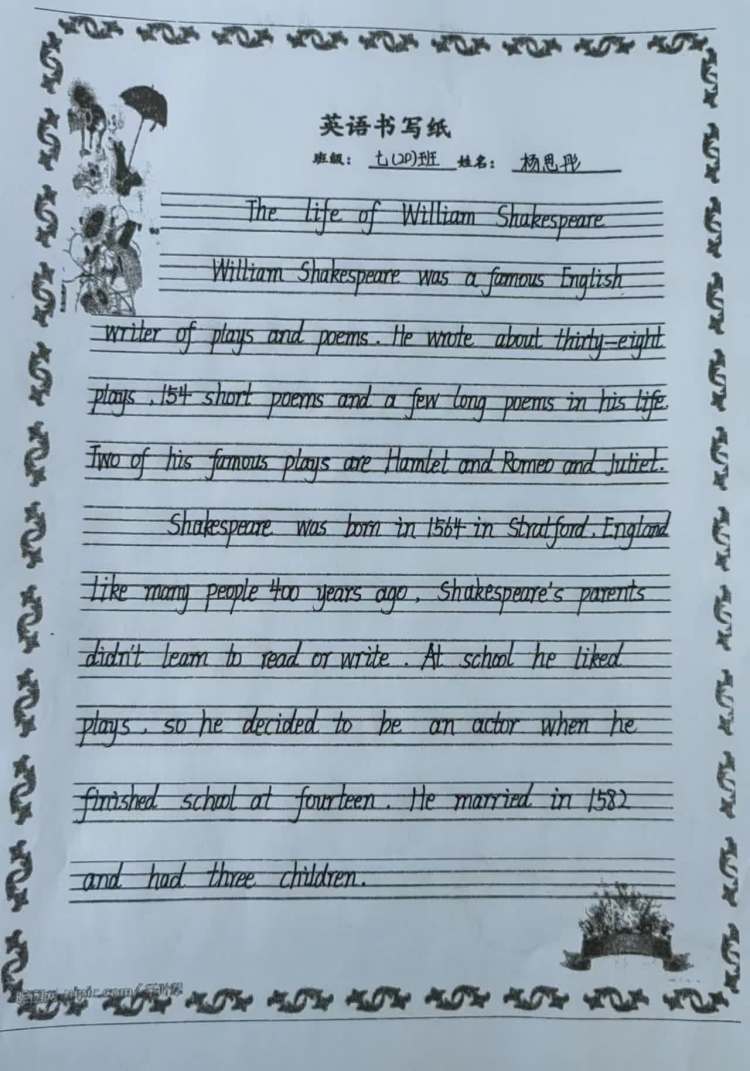 英语书写纸
班级: 七(20)班 姓名: 杨思彤
The life of William Shakespeare
William Shakespeare was a famous English
writer of plays and poems. He wrote about thirty-eight
plays, 154 short poems and a few long poems in his life.
Two of his famous plays are Hamlet and Romeo and Juliet.
Shakespeare was born in 1564 in Stratford, England
like many people 400 years ago, Shakespeare's parents
didn't learn to read or write. At school he liked
plays, so he decided to be an actor when he
finished school at fourteen. He married in 1582
and had three children.